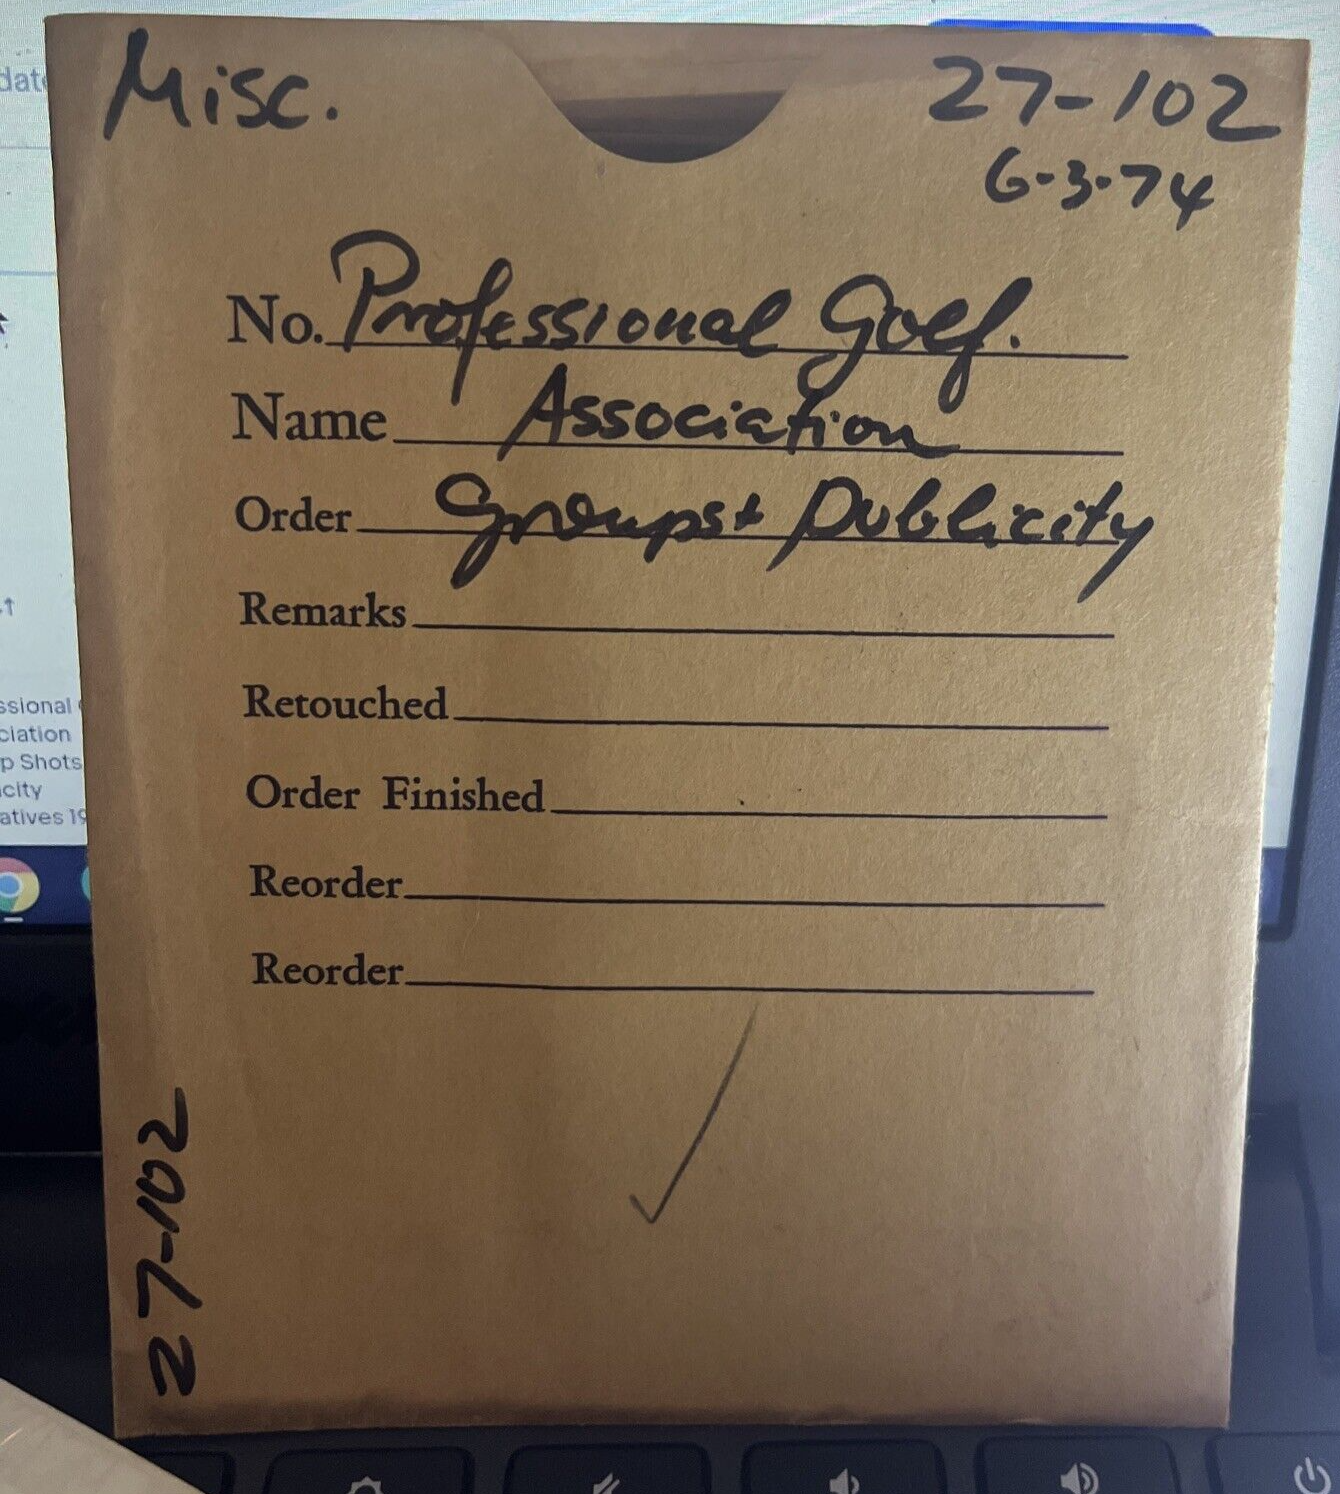 Misc.
27-102
6-3-74
No. Professional Golf.
Name Association
Order Groups + Publicity
Remarks
Retouched
Order Finished
Reorder
Reorder
27-102
date
ssional
ciation
p Shots
city
atives 19